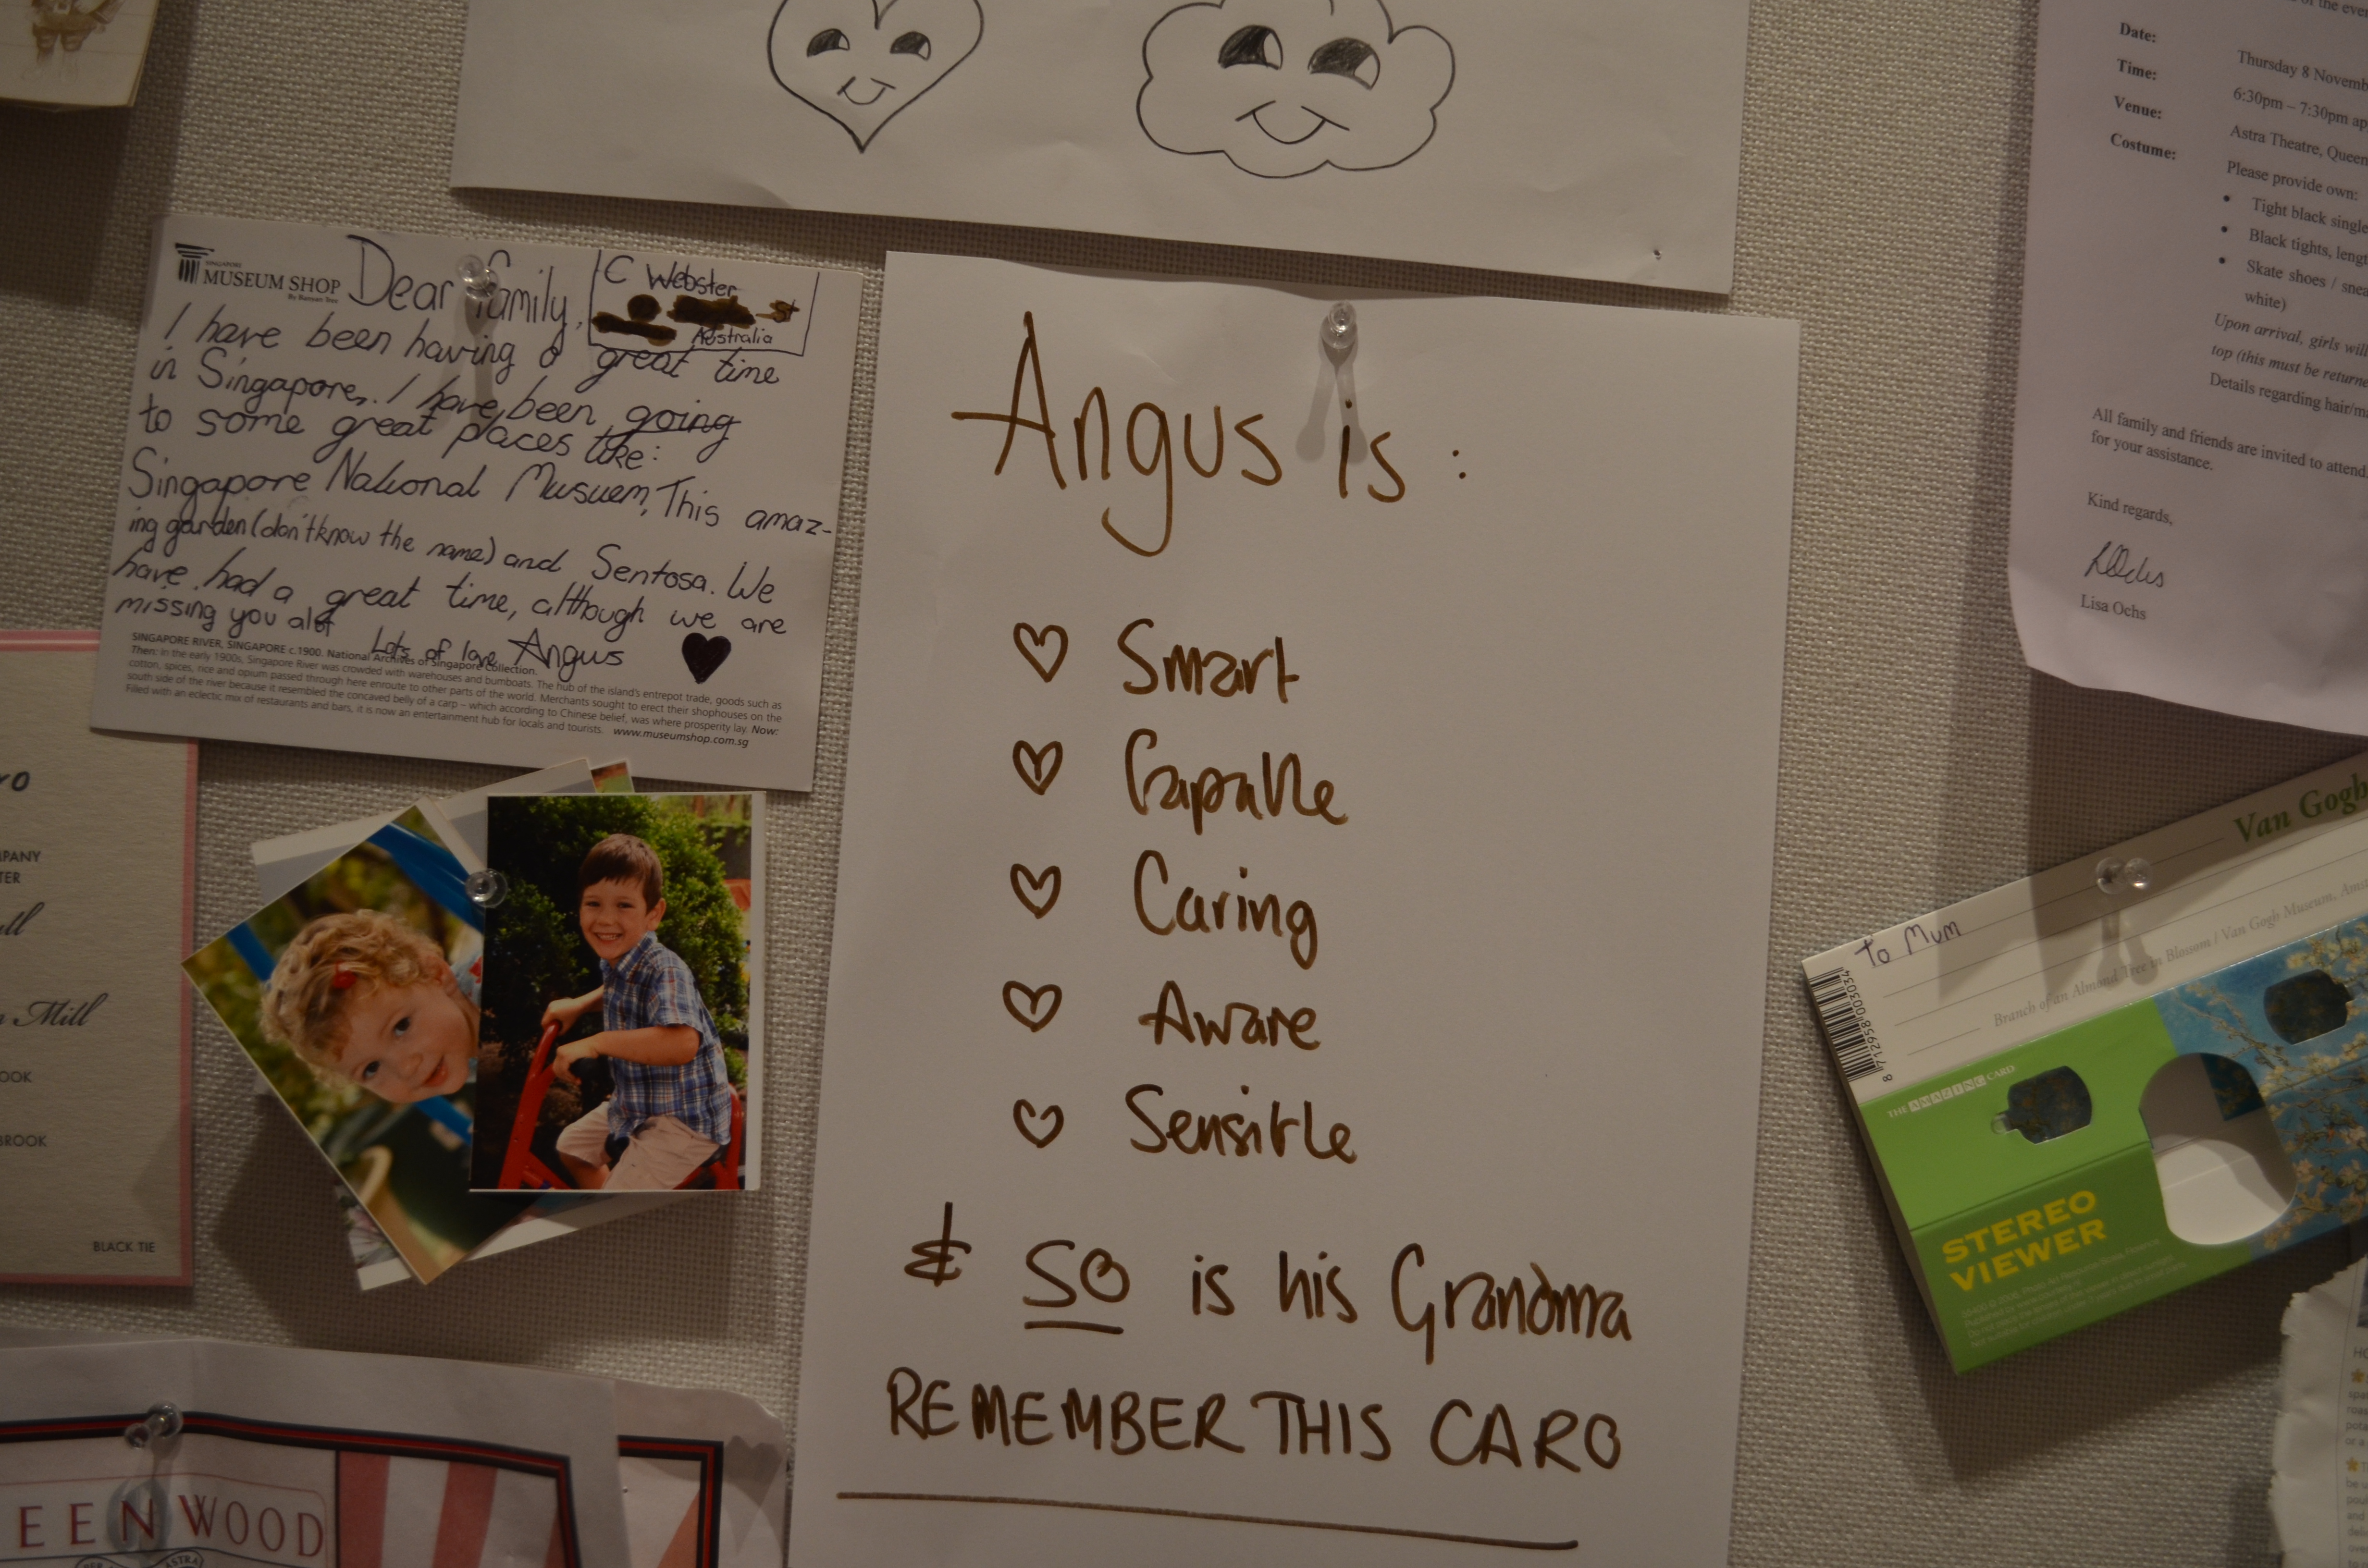 SINGAPORE
MUSEUM SHOP
By Banyan Tree
Dear family,
C Webster
St
Australia
I have been having a great time
in Singapore, I have been going
to some great places like:
Singapore National Musuem, This amaz-
ing garden (don't know the name) and Sentosa. We
have had a great time, although we are
missing you alot
Lots of love Angus
SINGAPORE RIVER, SINGAPORE c.1900. National Archives of Singapore Collection.
Then: In the early 1900s, Singapore River was crowded with warehouses and bumboats. The hub of the island's entrepot trade, goods such as
cotton, spices, rice and opium passed through here enroute to other parts of the world. Merchants sought to erect their shophouses on the
south side of the river because it resembled the concaved belly of a carp – which according to Chinese belief, was where prosperity lay. Now:
Filled with an eclectic mix of restaurants and bars, it is now an entertainment hub for locals and tourists. www.museumshop.com.sg
Angus is:
Smart
Capable
Caring
Aware
Sensible
& SO is his Grandma
REMEMBER THIS CARO
Date:
Thursday 8 Novemb
Time:
6:30pm – 7:30pm ap
Venue:
Astra Theatre, Queen
Costume:
Please provide own:
• Tight black single
• Black tights, lengt
• Skate shoes / snea
white)
Upon arrival, girls will
top (this must be returne
Details regarding hair/ma
All family and friends are invited to attend.
for your assistance.
Kind regards,
Lisa Ochs
Van Gogh
To Mum
Branch of an Almond Tree in Blossom / Van Gogh Museum, Ams
8 712958 003034
THE AMAZING CARD
STEREO
VIEWER
ro
PANY
TER
ll
n Mill
OOK
BROOK
BLACK TIE
EENWOOD
PER
ASTRA